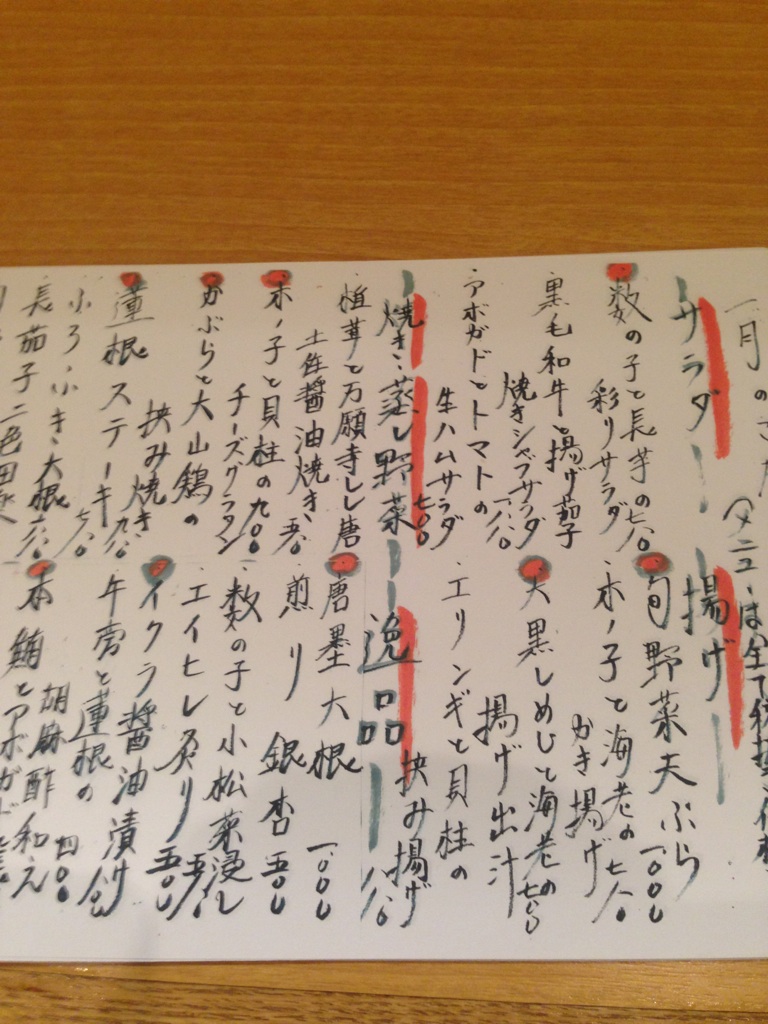 一月の
メニューは全て税抜
サラダ
数の子と長芋の
彩りサラダ 七八〇
黒毛和牛と揚げ茄子
焼きシャブサラダ 一、一八〇
アボガドとトマトの
生ハムサラダ 七八〇
焼き、蒸し野菜
椎茸と万願寺しし唐
土佐醤油焼き 五八〇
木ノ子と貝柱の
チーズグラタン 九〇〇
かぶらと大山鶏の
挟み焼き 九八〇
蓮根ステーキ 七八〇
ふろふき大根 六八〇
長茄子二色田楽
揚げ
旬野菜天ぷら 一、〇〇〇
木ノ子と海老の
かき揚げ 七八〇
大黒しめじと海老の
揚げ出汁 七八〇
エリンギと貝柱の
挟み揚げ 八八〇
逸品
唐墨大根 一、〇〇〇
煎り銀杏 五〇〇
数の子と小松菜浸し 五八〇
エイヒレ炙り 五〇〇
イクラ醤油漬け
牛蒡と蓮根の
胡麻酢和え 四〇〇
本鮪とアボガド